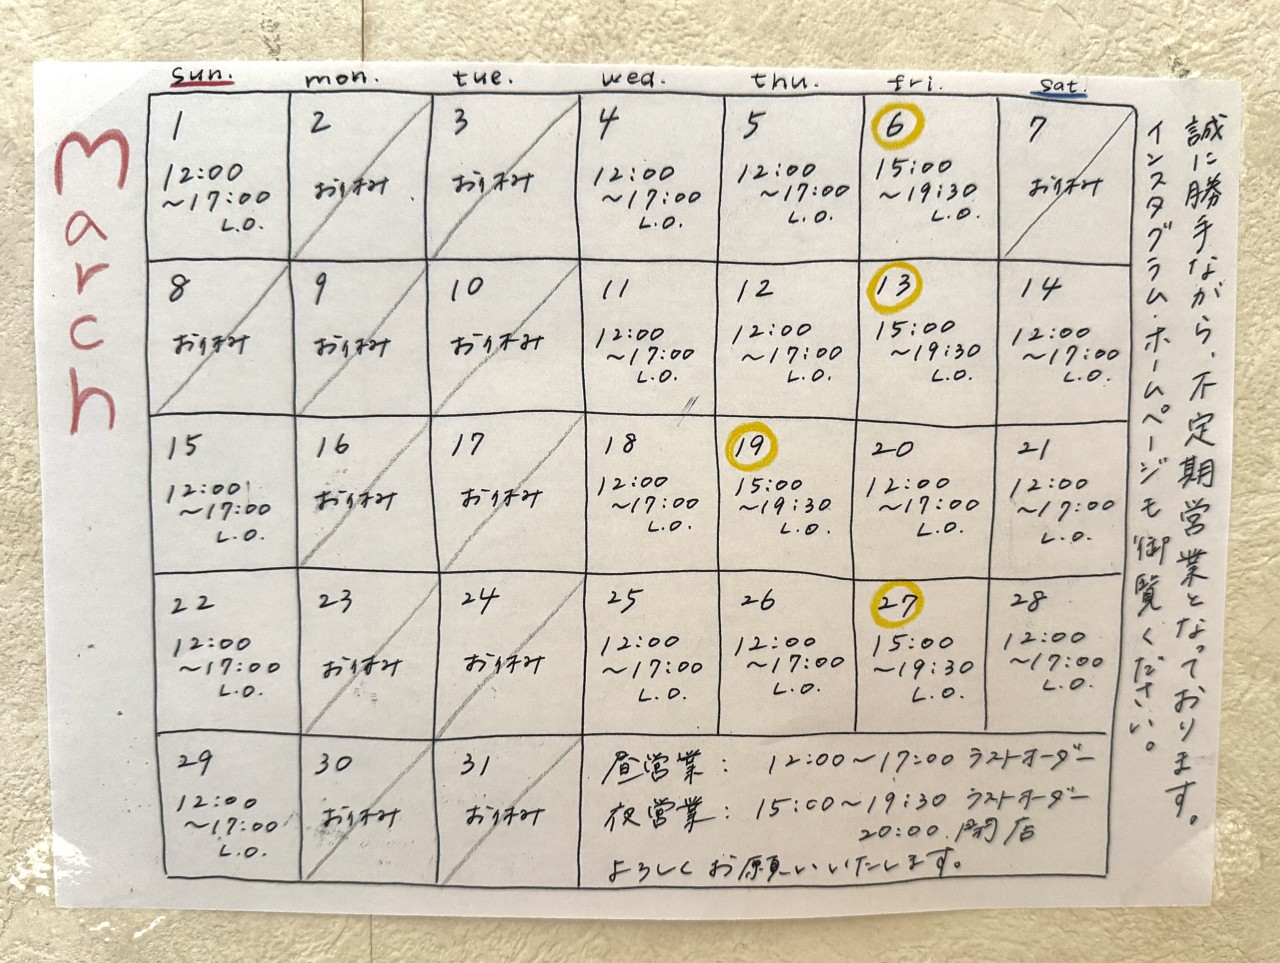 March
sun. mon. tue. wed. thu. fri. sat.
1
12:00
～17:00
L.O.
2
お休み
3
お休み
4
12:00
～17:00
L.O.
5
12:00
～17:00
L.O.
6
15:00
～19:30
L.O.
7
お休み
8
お休み
9
お休み
10
お休み
11
12:00
～17:00
L.O.
12
12:00
～17:00
L.O.
13
15:00
～19:30
L.O.
14
12:00
～17:00
L.O.
15
12:00
～17:00
L.O.
16
お休み
17
お休み
18
12:00
～17:00
L.O.
19
15:00
～19:30
L.O.
20
12:00
～17:00
L.O.
21
12:00
～17:00
L.O.
22
12:00
～17:00
L.O.
23
お休み
24
お休み
25
12:00
～17:00
L.O.
26
12:00
～17:00
L.O.
27
15:00
～19:30
L.O.
28
12:00
～17:00
L.O.
29
12:00
～17:00
L.O.
30
お休み
31
お休み
昼営業： 12:00～17:00 ラストオーダー
夜営業： 15:00～19:30 ラストオーダー
20:00 閉店
よろしくお願いいたします。
誠に勝手ながら、不定期営業となっております。
インスタグラム・ホームページも御覧ください。